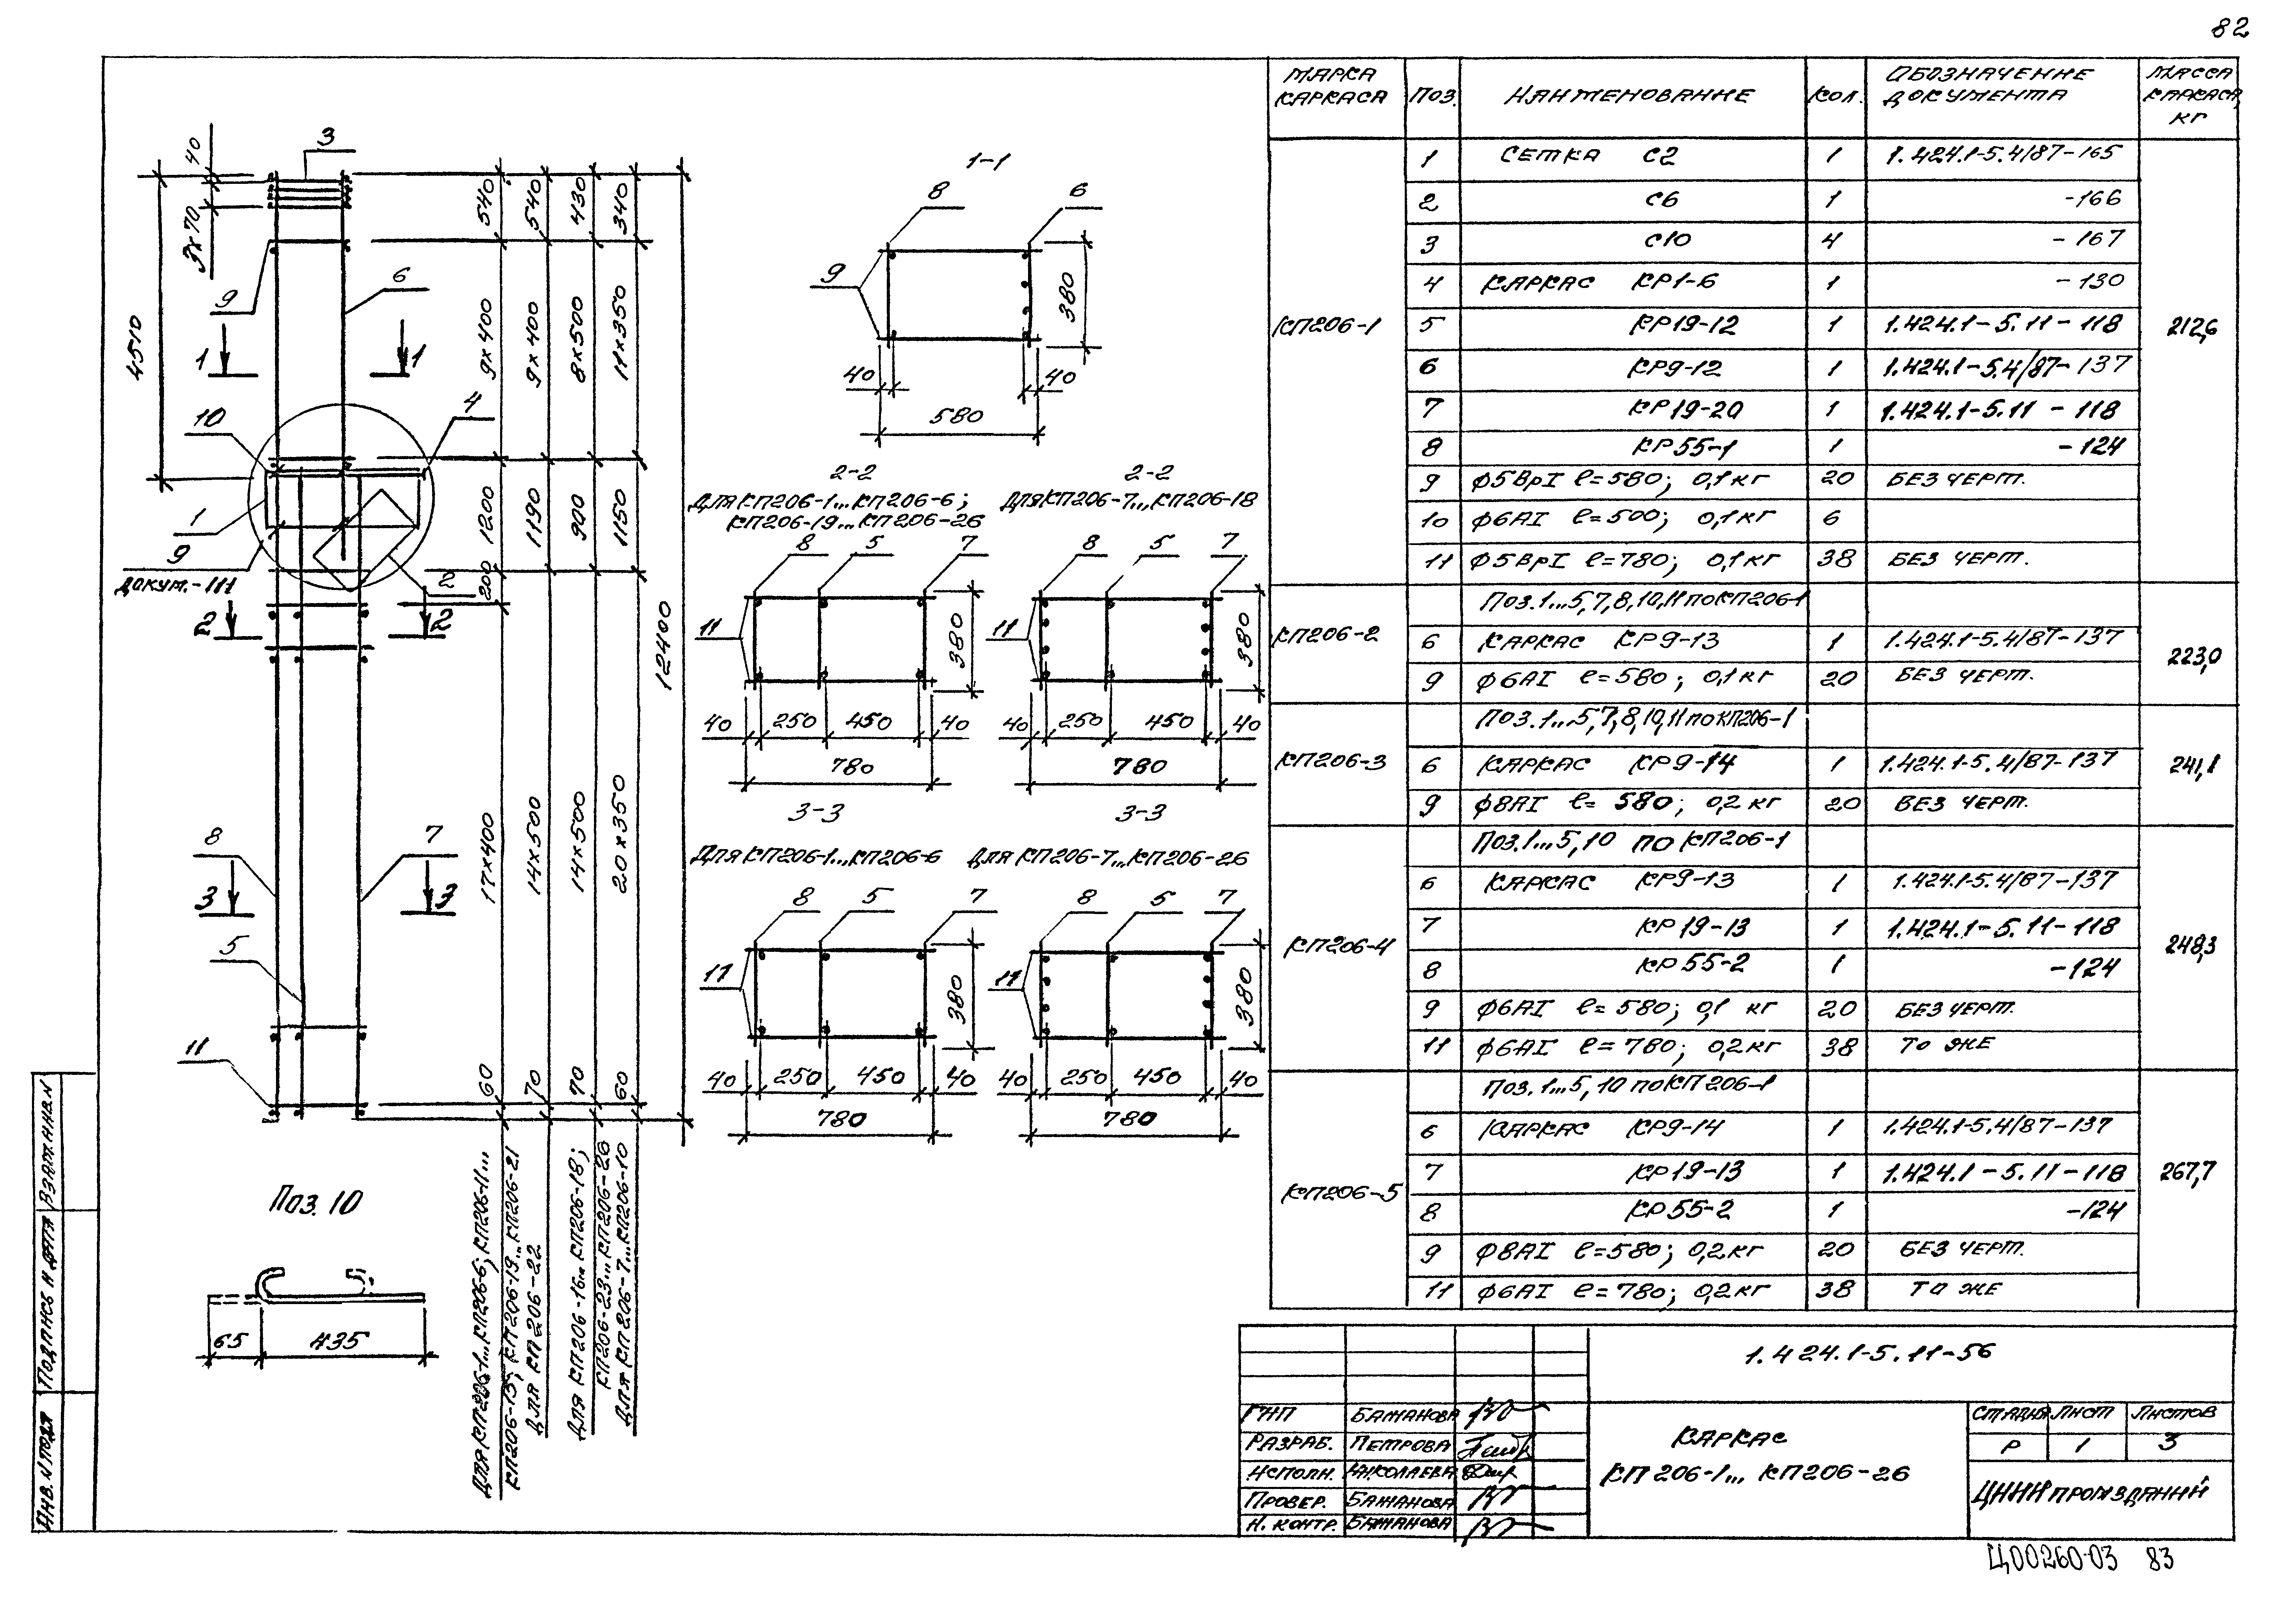 82
МАРКА КАРКАСА ПОЗ. НАИМЕНОВАНИЕ КОЛ. ОБОЗНАЧЕНИЕ ДОКУМЕНТА МАССА КАРКАСА, КГ
КП206-1 212,6
1 СЕТКА С2 1 1.424.1-5.4/87-165
2 С6 1 -166
3 С10 4 -167
4 КАРКАС КР1-6 1 -130
5 КР19-12 1 1.424.1-5.11-118
6 КР9-12 1 1.424.1-5.4/87-137
7 КР19-20 1 1.424.1-5.11-118
8 КР55-1 1 -124
9 ф5ВрI ℓ=580; 0,1кг 20 БЕЗ ЧЕРТ.
10 ф6АI ℓ=500; 0,1кг 6
11 ф5ВрI ℓ=780; 0,1кг 38 БЕЗ ЧЕРТ.
КП206-2 223,0
Поз.1...5,7,8,10,11 по КП206-1
6 КАРКАС КР9-13 1 1.424.1-5.4/87-137
9 ф6АI ℓ=580; 0,1кг 20 БЕЗ ЧЕРТ.
КП206-3 241,1
Поз.1...5,7,8,10,11 по КП206-1
6 КАРКАС КР9-14 1 1.424.1-5.4/87-137
9 ф8АI ℓ=580; 0,2кг 20 БЕЗ ЧЕРТ.
КП206-4 248,3
Поз.1...5,10 по КП206-1
6 КАРКАС КР9-13 1 1.424.1-5.4/87-137
7 КР19-13 1 1.424.1-5.11-118
8 КР55-2 1 -124
9 ф6АI ℓ=580; 0,1 кг 20 БЕЗ ЧЕРТ.
11 ф6АI ℓ=780; 0,2кг 38 ТО ЖЕ
КП206-5 267,7
Поз.1...5,10 по КП206-1
6 КАРКАС КР9-14 1 1.424.1-5.4/87-137
7 КР19-13 1 1.424.1-5.11-118
8 КР55-2 1 -124
9 ф8АI ℓ=580; 0,2кг 20 БЕЗ ЧЕРТ.
11 ф6АI ℓ=780; 0,2кг 38 ТО ЖЕ
40
3
3×70
9
6
4510
1 1
10
4
1
9
ДОКУМ.-111
2
2 2
8
7
3 3
5
11
540 9×400 1200 200 17×400 60
540 9×400 1190 14×500 70
430 8×500 900 14×500 70
340 11×350 1150 20×350 60
12400
ДЛЯ КП206-1...КП206-6; КП206-11...
КП206-15; КП206-19...КП206-21
ДЛЯ КП206-22
ДЛЯ КП206-16...КП206-18;
КП206-23...КП206-26
ДЛЯ КП206-7...КП206-10
1-1
8 6
9
380
40 40
580
2-2
ДЛЯ КП206-1...КП206-6;
КП206-19...КП206-26
8 5 7
11
380
40 250 450 40
780
2-2
ДЛЯ КП206-7...КП206-18
8 5 7
11
380
40 250 450 40
780
3-3
Для КП206-1...КП206-6
8 5 7
11
380
40 250 450 40
780
3-3
Для КП206-7...КП206-26
8 5 7
11
380
40 250 450 40
780
Поз. 10
65 435
ВЗАМ.ИНВ.N
ПОДПИСЬ И ДАТА
ИНВ.N ПОДЛ
1.424.1-5.11-56
ГИП БАЖАНОВА
РАЗРАБ. ПЕТРОВА
ИСПОЛН. НИКОЛАЕВА
ПРОВЕР. БАЖАНОВА
Н. КОНТР. БАЖАНОВА
КАРКАС
КП206-1... КП206-26
СТАДИЯ ЛИСТ ЛИСТОВ
Р 1 3
ЦНИИпромзданий
Ц00260-03 83